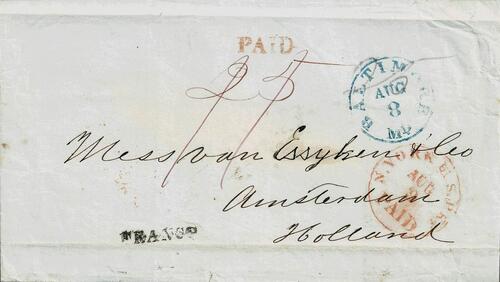 PAID
25
BALTIMORE
AUG
8
Md.
Mess van Essyken & Co
N. YORK
AUG
PAID
Amsterdam
Holland
FRANCO